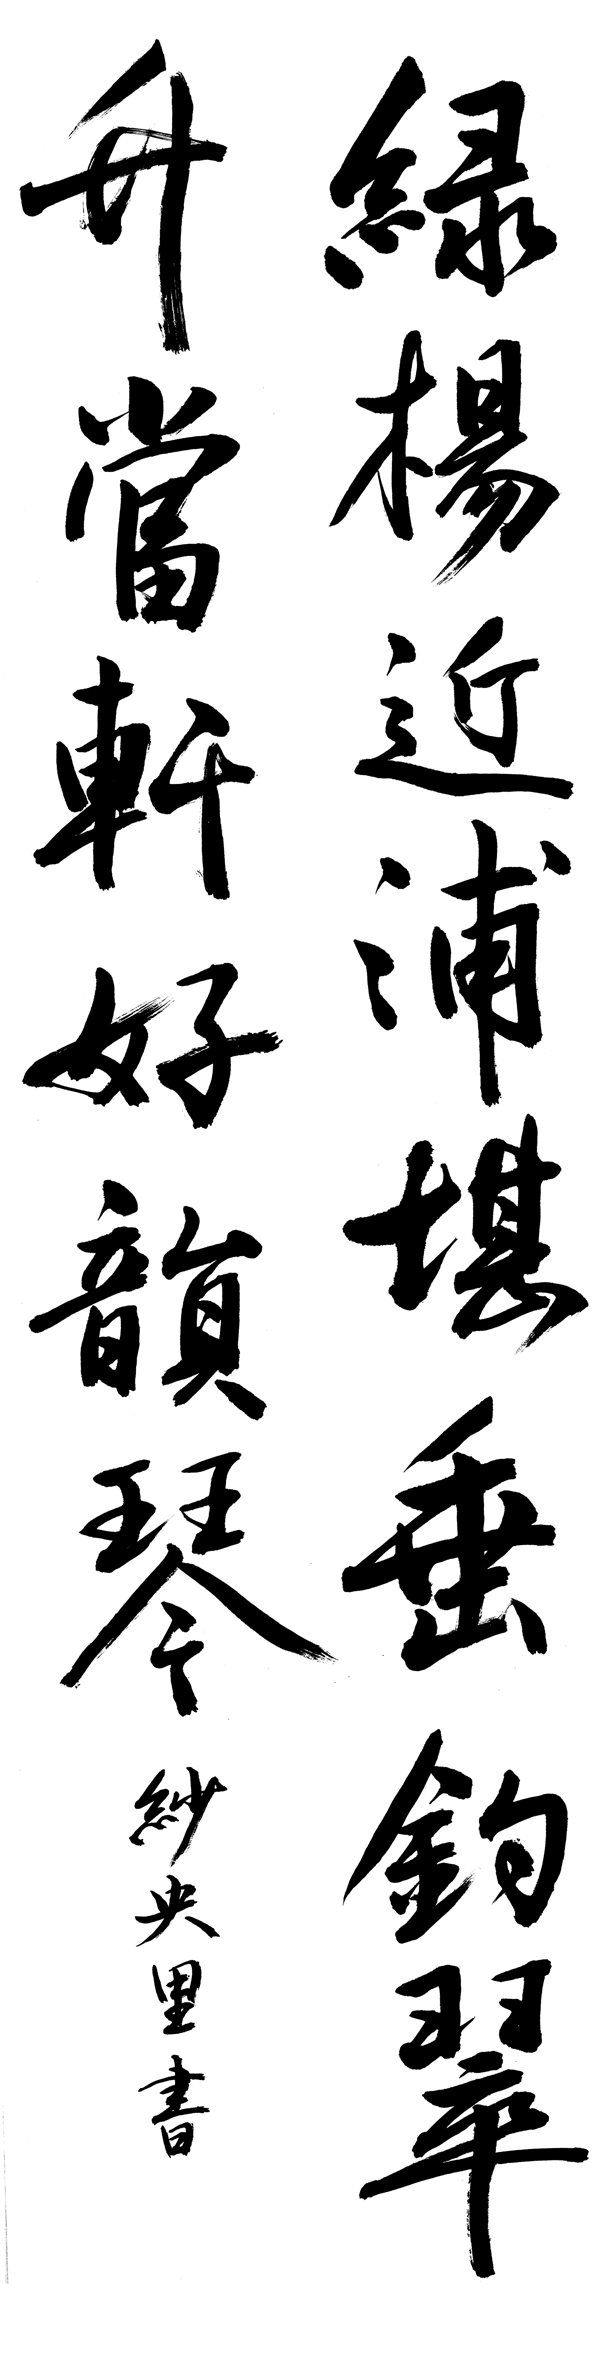 緑楊近浦堪垂釣翠
竹當軒好韻琴 紗央里書